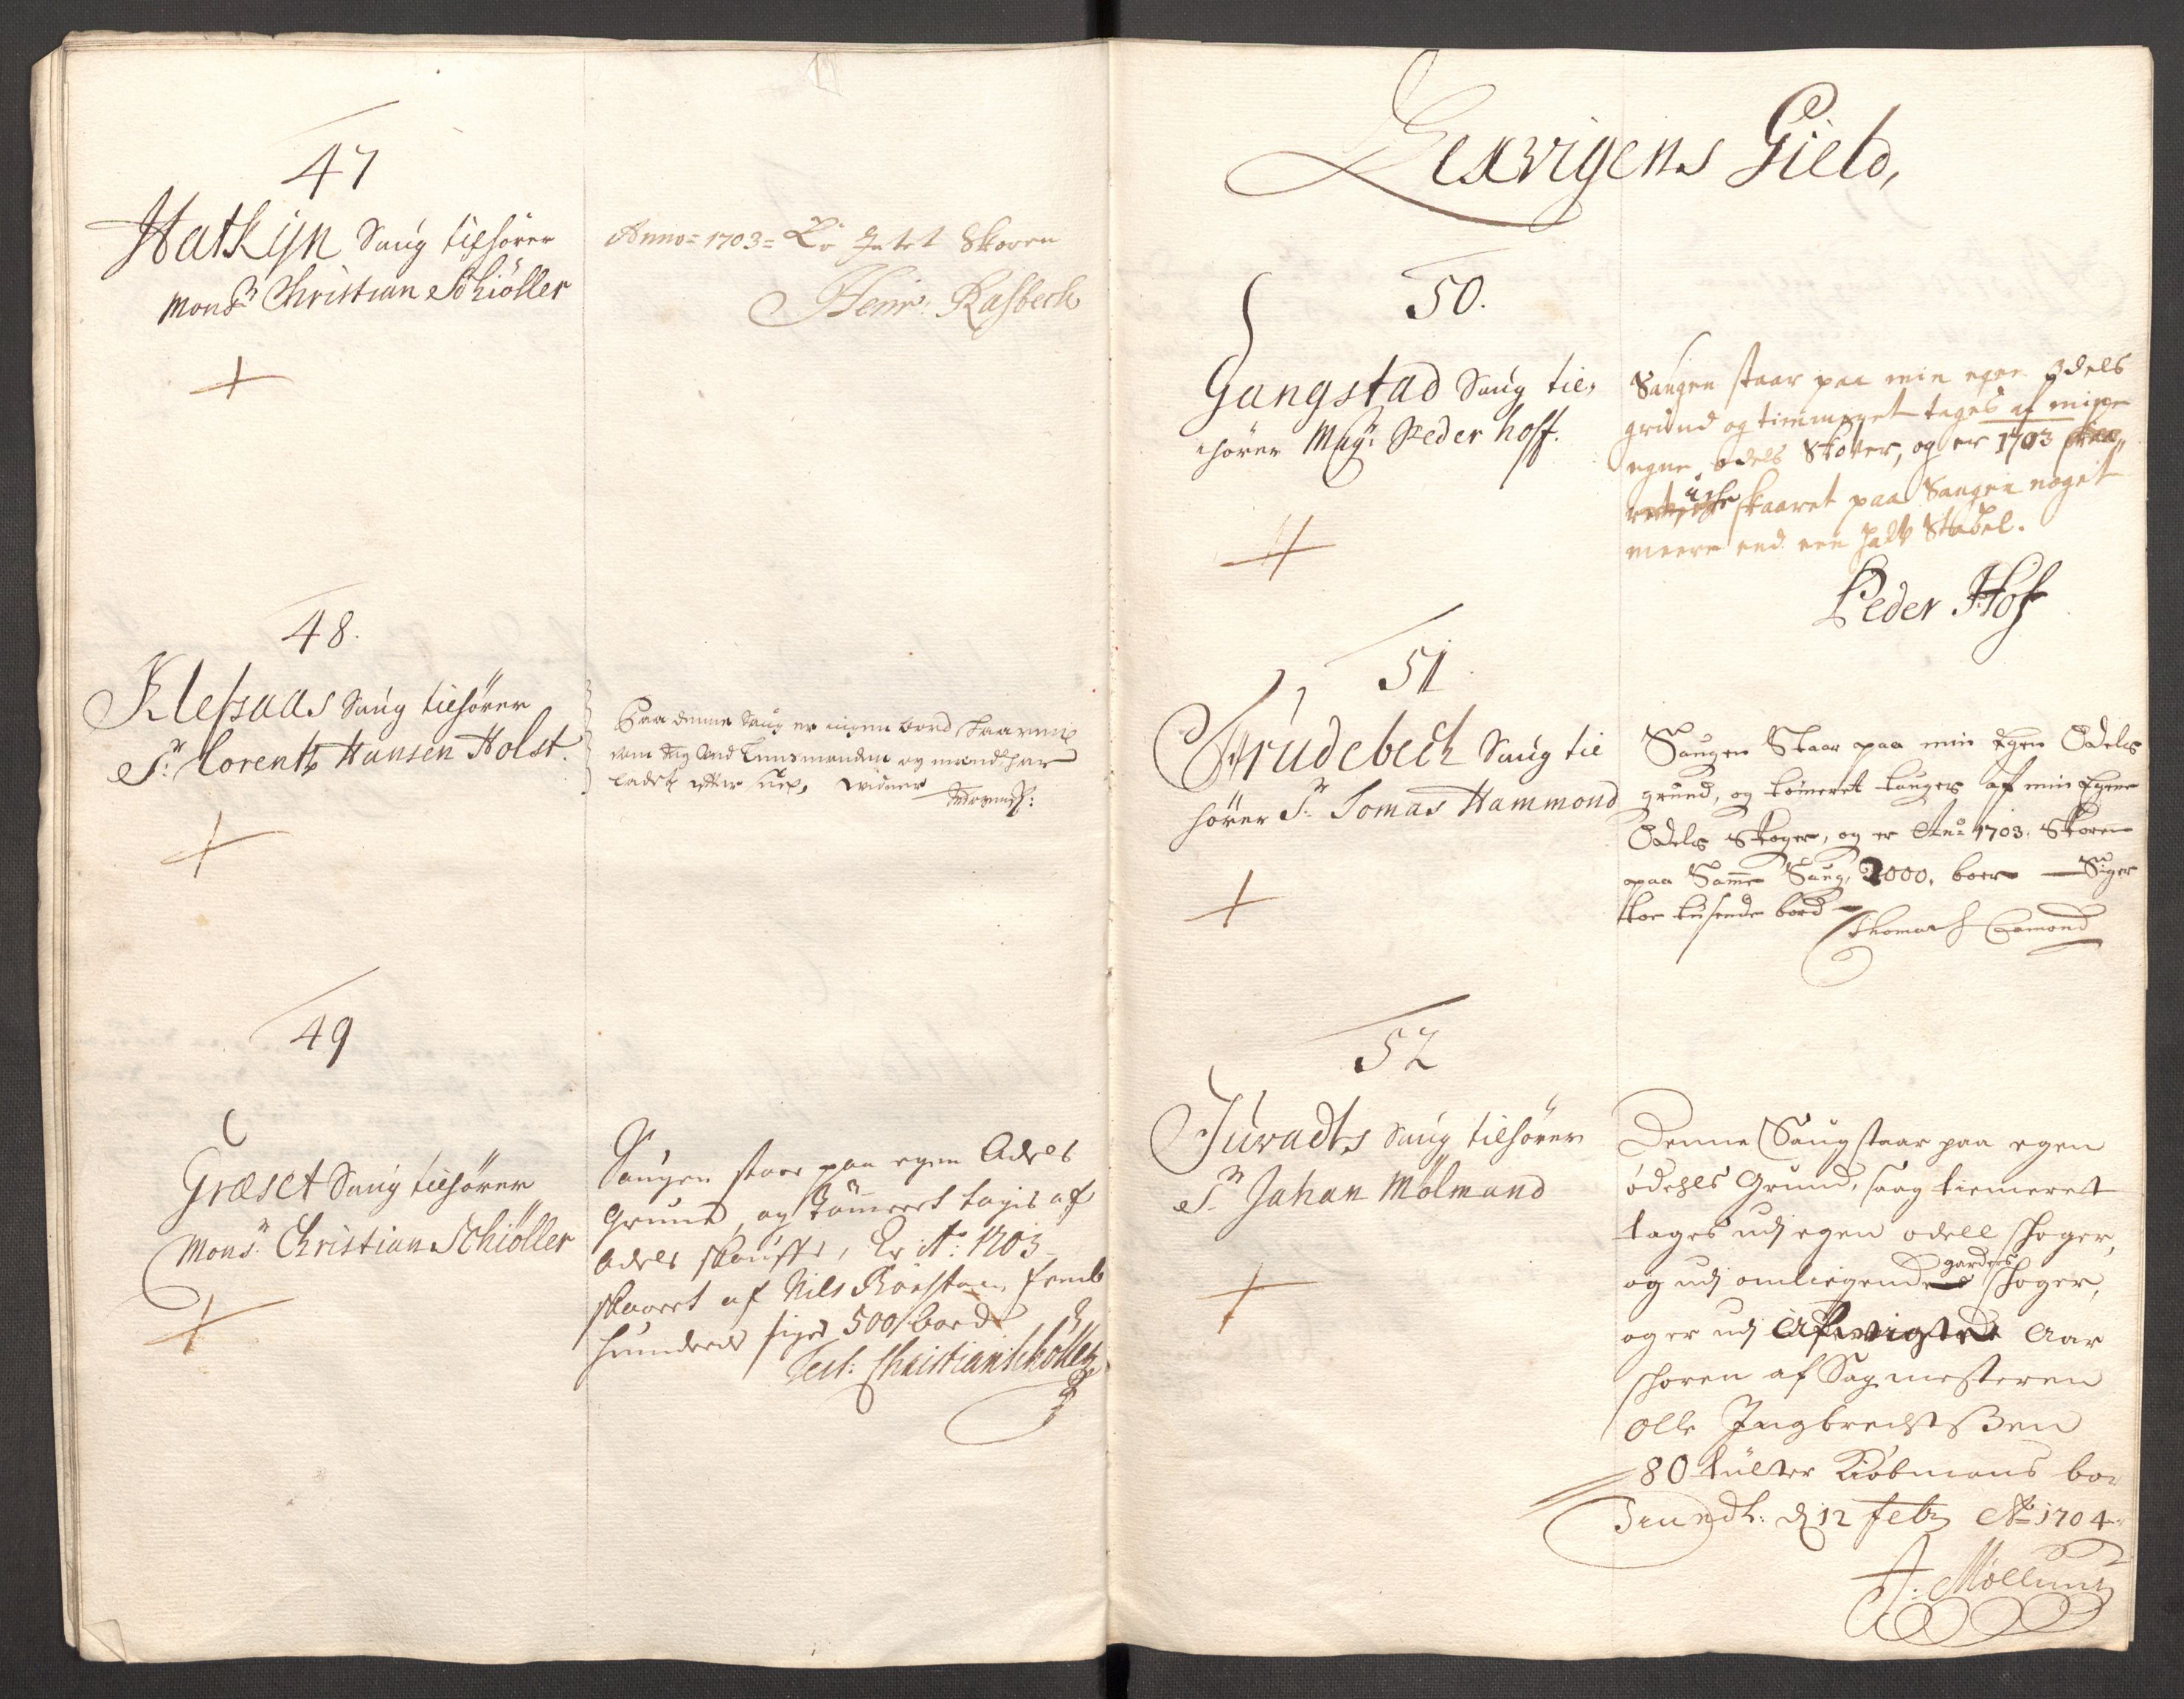 47
Hatkijn Saug tilhører
Monsr Christian Schiøller
Anno = 1703 = Er Intet Skoren
Henr: Kasbech
48.
Klefsaas Saug tilhører
Sr: Lorentz Hansen Holst.
Paa denne Saug er ingen bord skaaren
49
Græset Saug tilhører
Monsr: Christian Schiøller
Saugen staar paa egen Odels
Grund, og Tømmeret tagis af
Odels skouffe, Er Ao: 1703
skaaret af Nils femb
hundrede siger 500 bord
Test: Christian Schøller
Lexvigens Gield,
50.
Gangstad Saug til,
hører Mag: Peder hoff.
Saugen staar paa min egen Odels
grund og timmeret tages af mine
egne odels Skover, og er 1703
iche skaaret paa Saugen noget
meere end een halv Stabel.
Peder Hof
51
Trudebech Saug til
hører Sr: Tomas Hammond
Saugen Staar paa min Egen Odels
grund, og tømeret tauges af min Egene
Odels Skoger, og er Ano 1703. Skoren
paa Samme Saug, 2000. boer — Siger
toe tusende bord
Thomas Hamond
52
Juvadts Saug tilhører
Sr Jahan Mølmand
Denne Saug staar paa egen
odehls Grund, saag tiemeret
tages udj egen odell skoger,
og udj omliegende garders skoger,
og er udj Afvigte Aar
skoren af Sagmesteren
Olle Ingbrechtsen
80 tülter Kiøbmans bor
Trundh: d 12 Febr Ao 1704
J: Møllmand